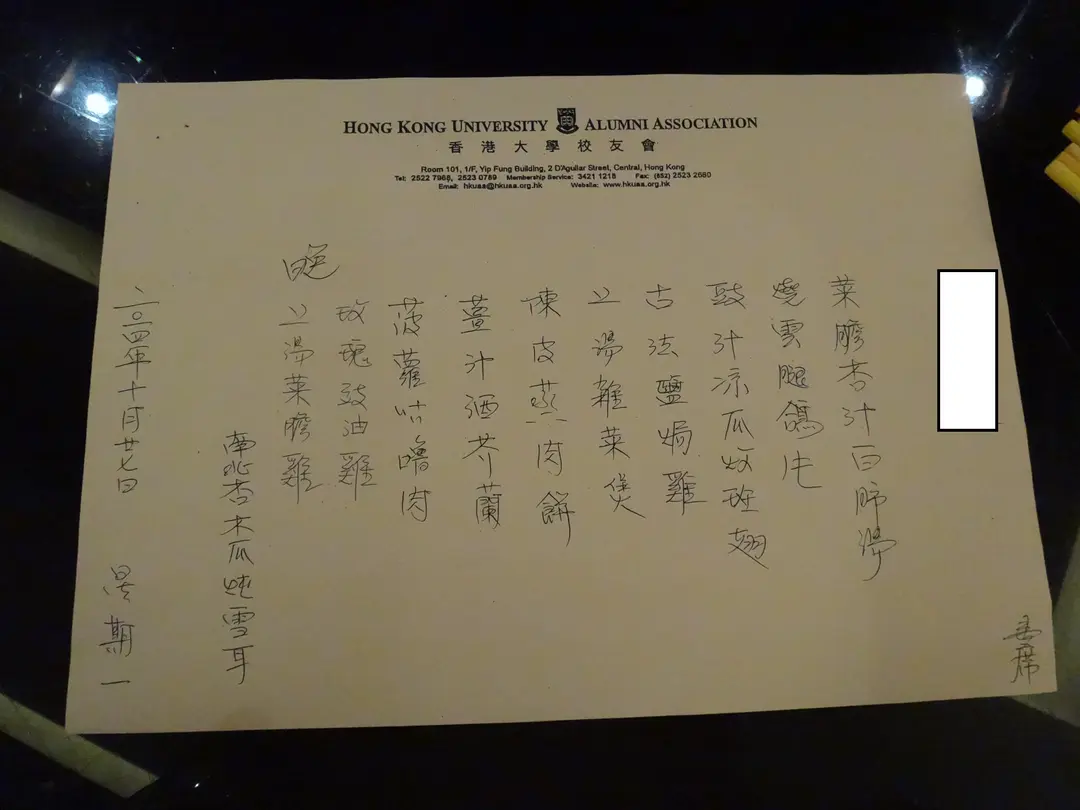 HONG KONG UNIVERSITY ALUMNI ASSOCIATION
香港大學校友會
Room 101, 1/F, Yip Fung Building, 2 D'Aguilar Street, Central, Hong Kong
Tel: 2522 7968, 2523 0789 Membership Service: 3421 1218 Fax: (852) 2523 2660
Email: hkuaa@hkuaa.org.hk Website: www.hkuaa.org.hk
席
菜膽杏汁白肺湯
燒雲腿鴿片
豉汁凉瓜炆斑翅
古法鹽焗雞
上湯雜菜煲
陳皮蒸肉餅
薑汁酒芥蘭
菠蘿咕嚕肉
玫瑰豉油雞
晚
上湯菜膽雞
南北杏木瓜炖雪耳
二〇一四年十月廿七日 星期一